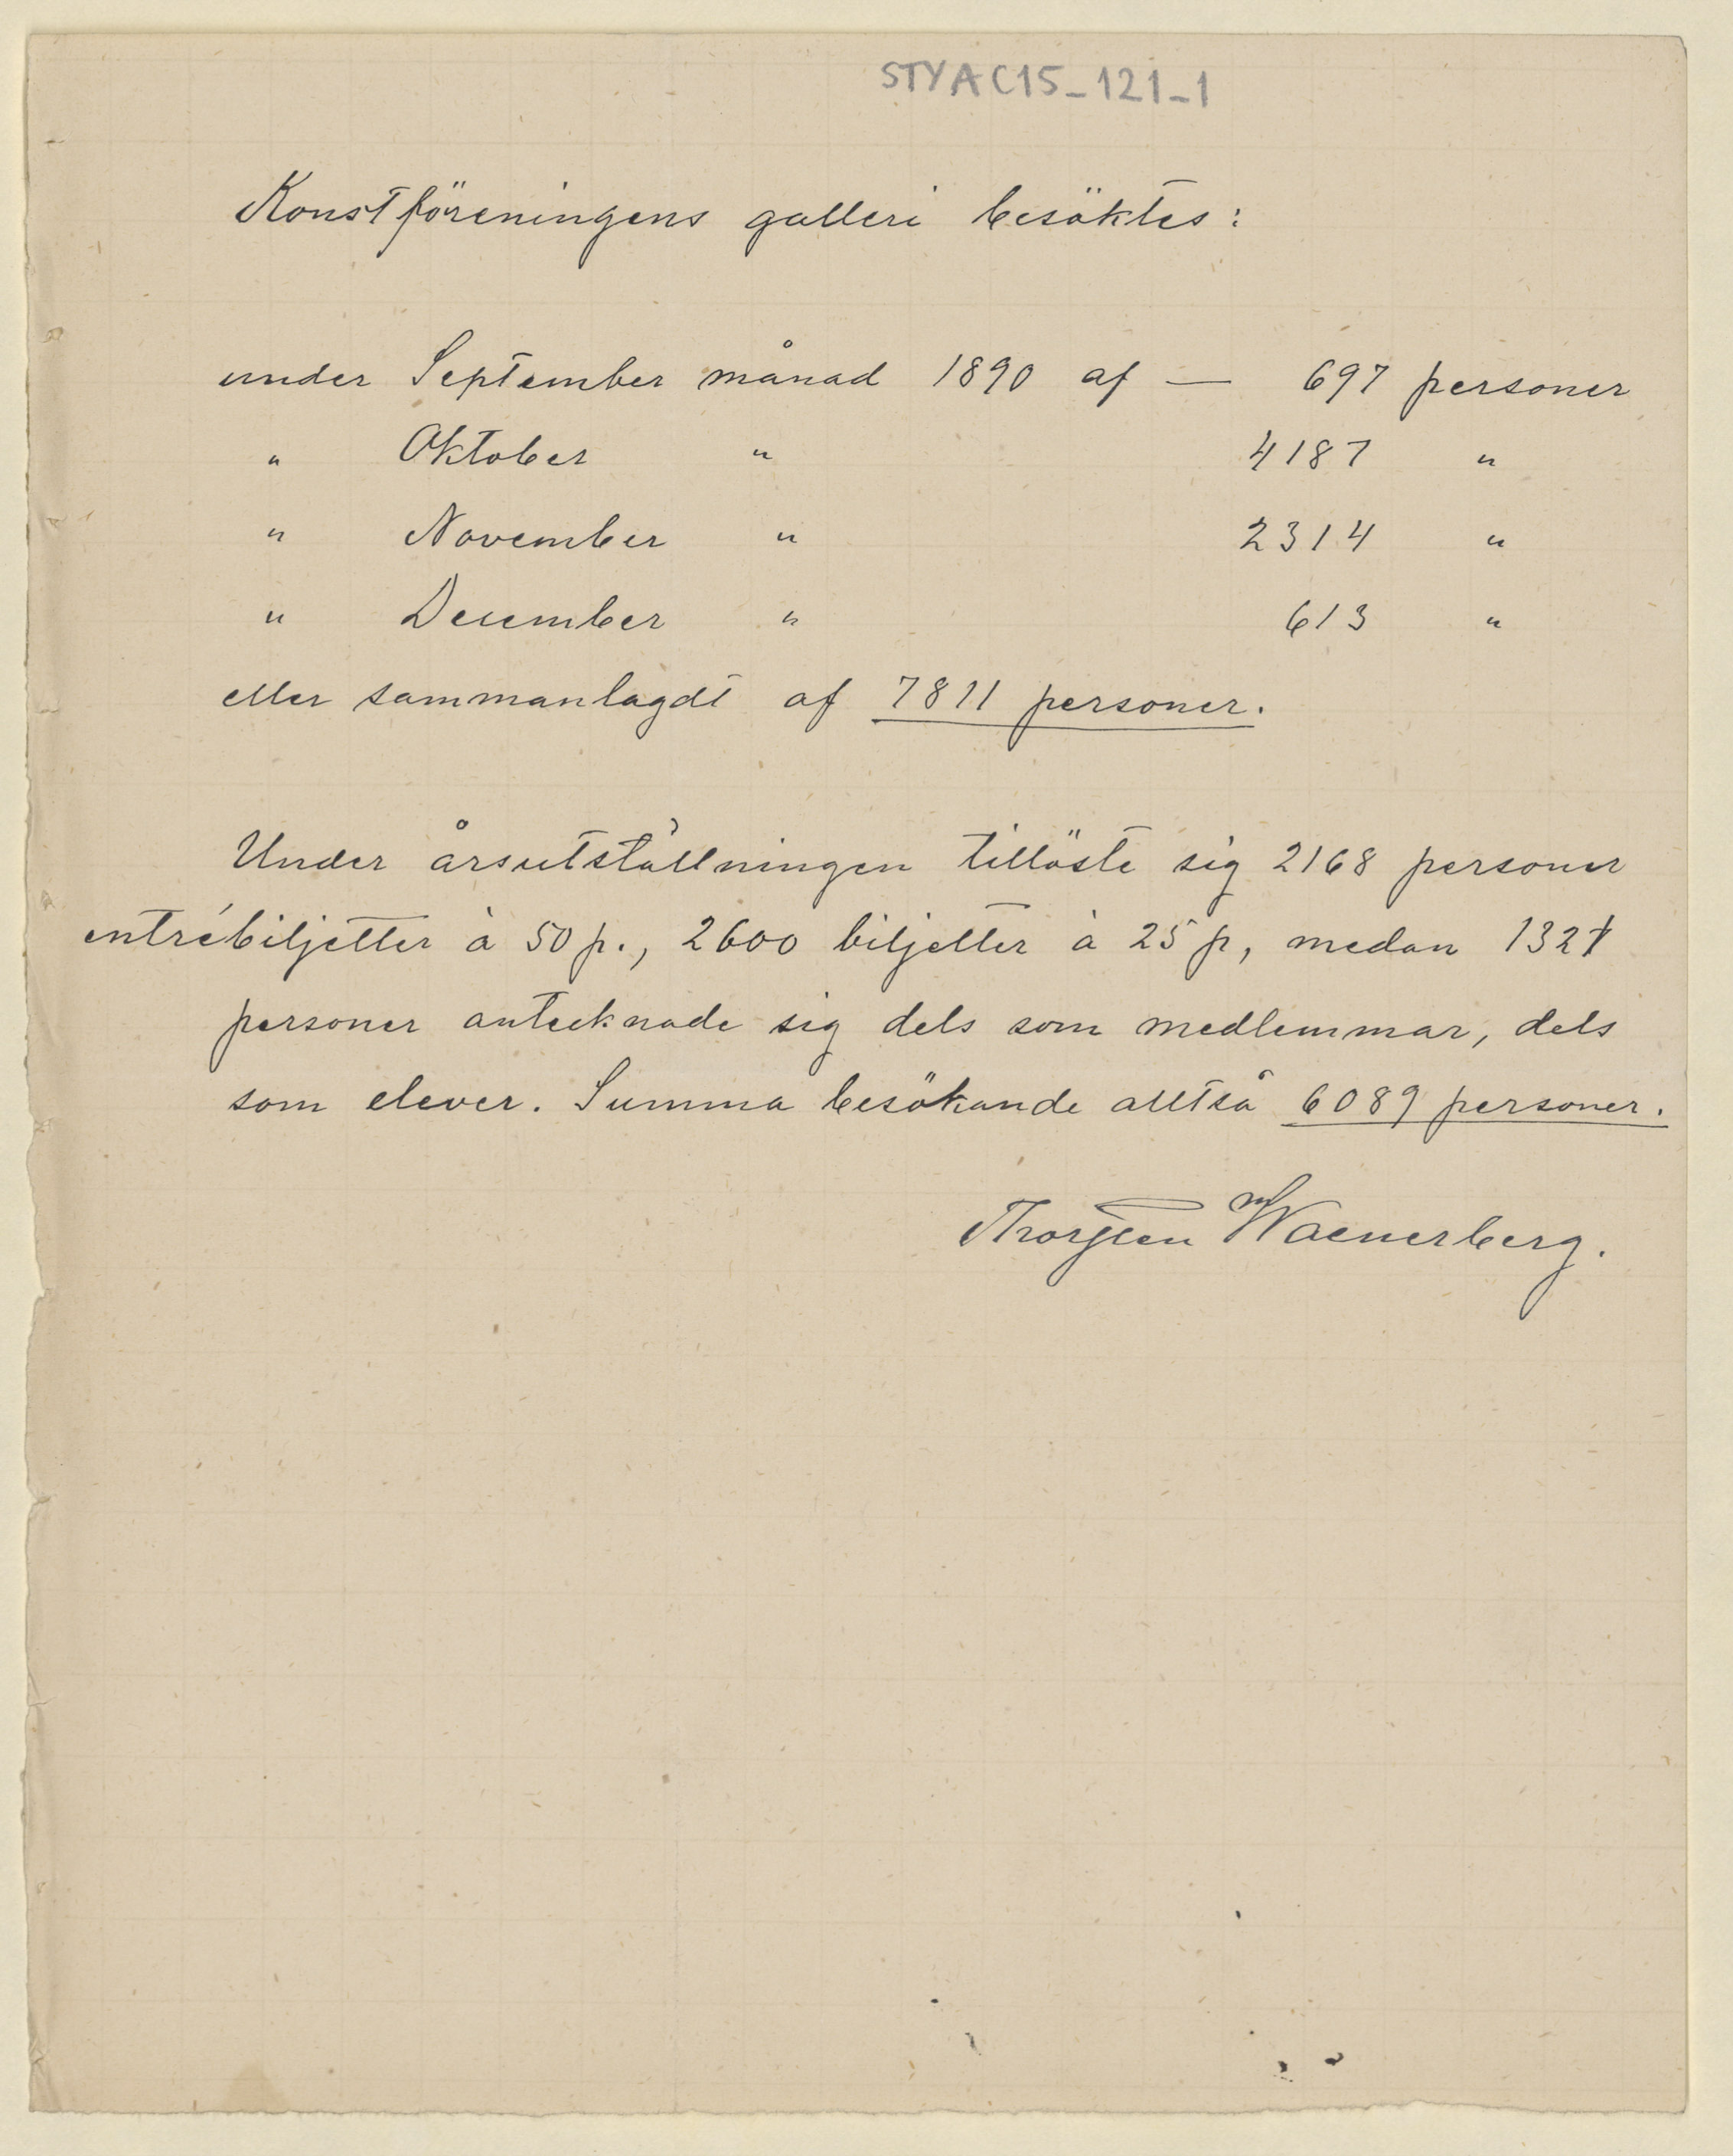 STYAC15_121_1
Konstföreningens galleri besöktes:
under September månad 1890 af — 697 personer
" Oktober " 4187 "
" November " 2314 "
" December " 613 "
eller sammanlagdt af 7811 personer.
Under årsutställningen tillöste sig 2168 personer
entrébiljetter à 50 p., 2600 biljetter à 25 p, medan 1321
personer antecknade sig dels som medlemmar, dels
som elever. Summa besökande alltså 6089 personer.
Thorsten Waenerberg.